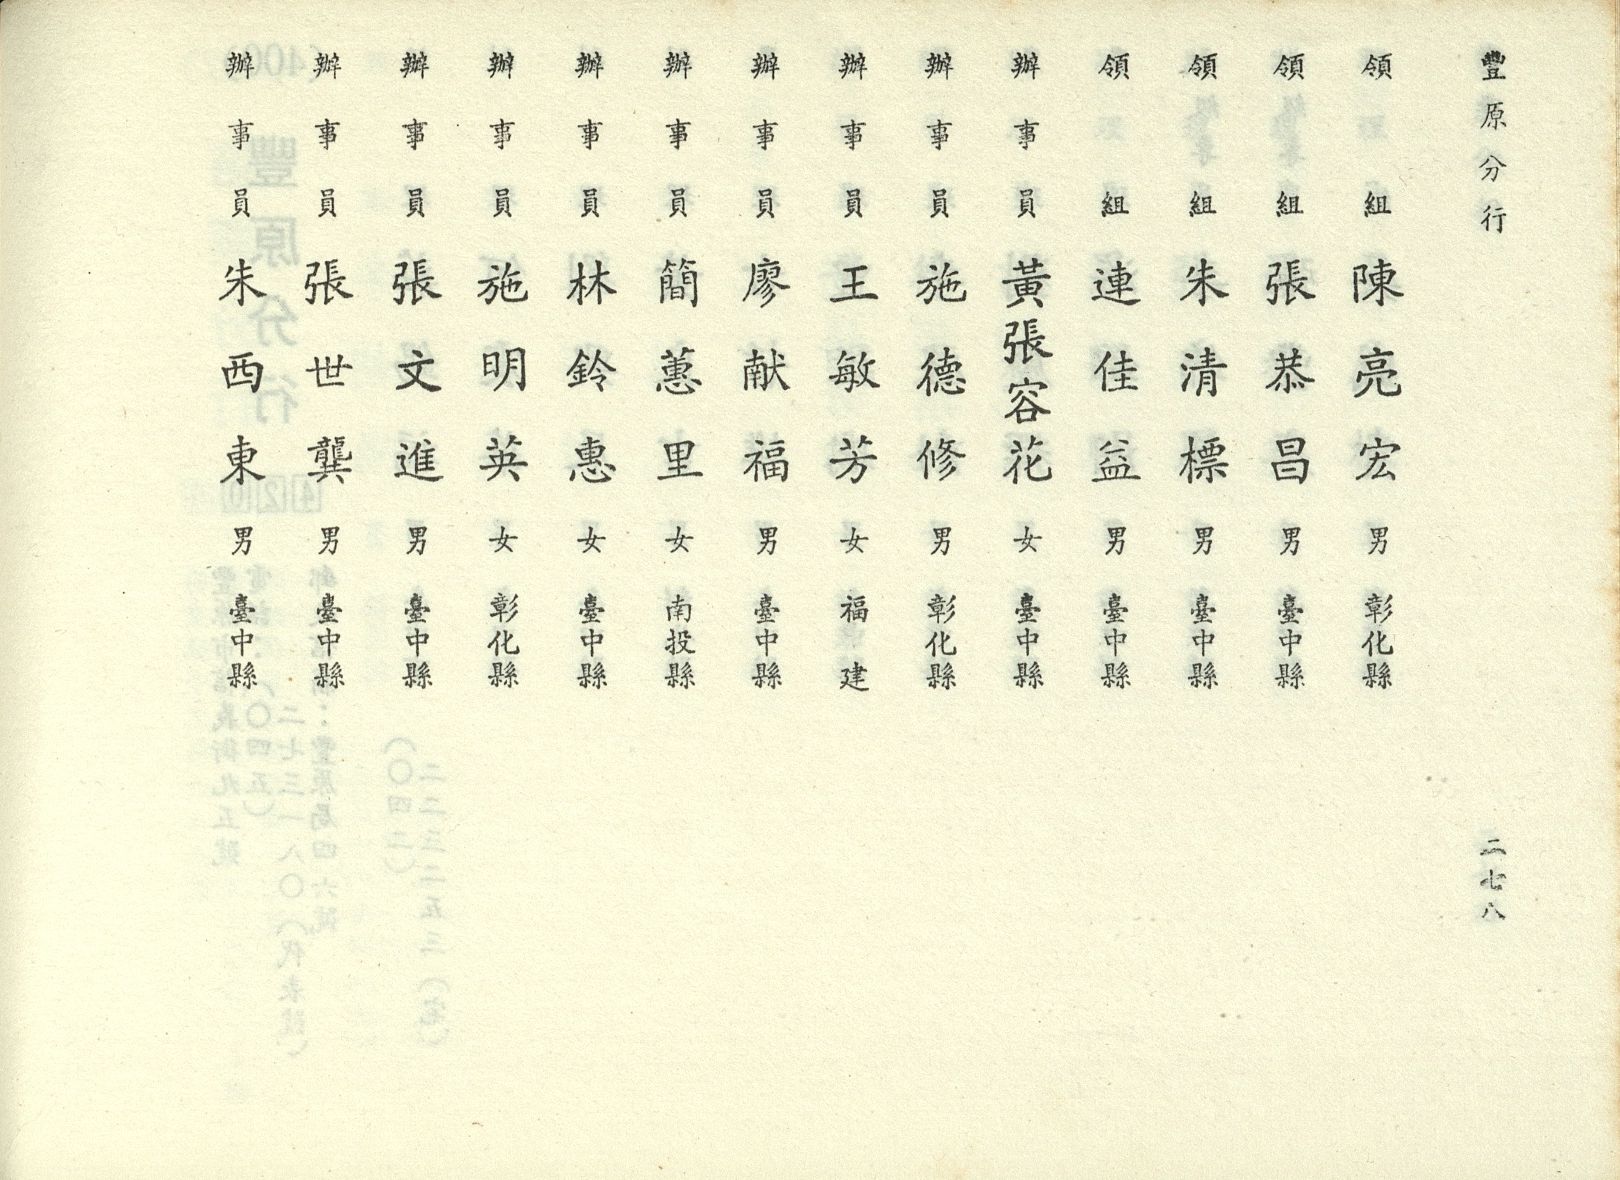 豐原分行
二七八
領組 陳亮宏 男 彰化縣
領組 張恭昌 男 臺中縣
領組 朱清標 男 臺中縣
領組 連佳益 男 臺中縣
辦事員 黃張容花 女 臺中縣
辦事員 施德修 男 彰化縣
辦事員 王敏芳 女 福建
辦事員 廖献福 男 臺中縣
辦事員 簡蕙里 女 南投縣
辦事員 林鈴惠 女 臺中縣
辦事員 施明英 女 彰化縣
辦事員 張文進 男 臺中縣
辦事員 張世龔 男 臺中縣
辦事員 朱西東 男 臺中縣